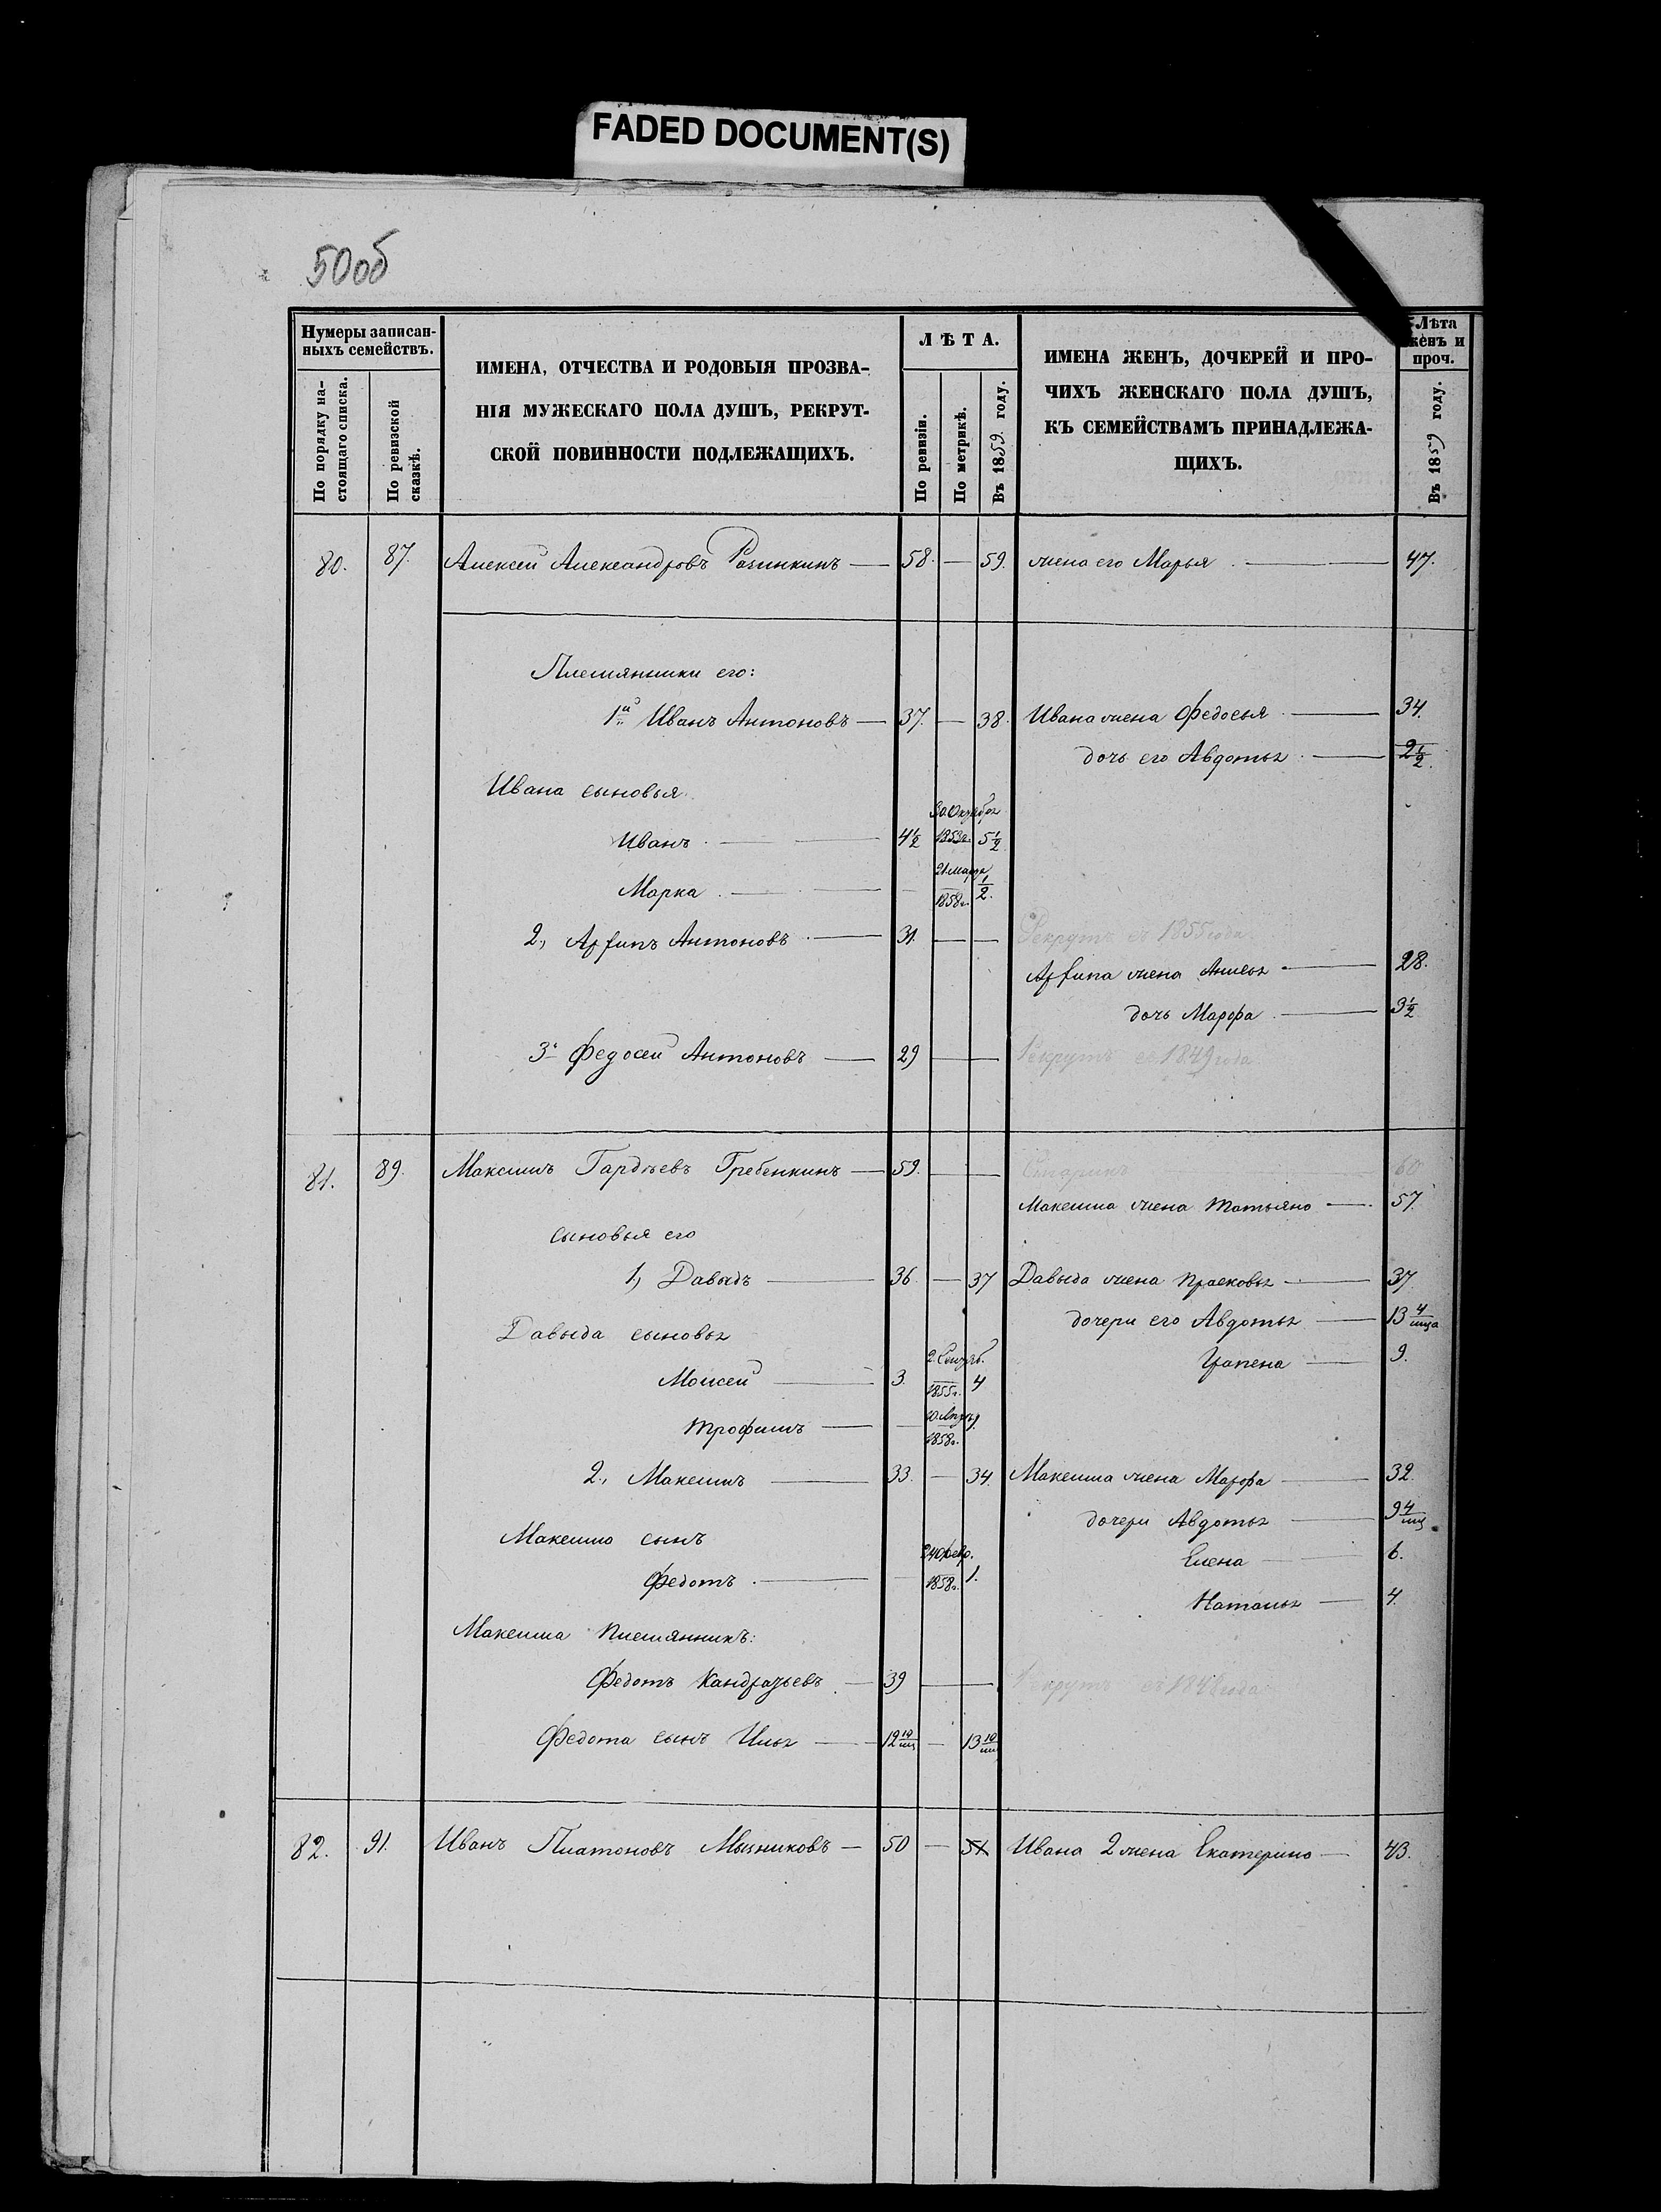 FADED DOCUMENT(S)
50об
Нумеры записан-
ныхъ семействъ.
По порядку на-
стоящаго списка.
По ревизской
сказкѣ.
ИМЕНА, ОТЧЕСТВА И РОДОВЫЯ ПРОЗВА-
НІЯ МУЖЕСКАГО ПОЛА ДУШЪ, РЕКРУТ-
СКОЙ ПОВИННОСТИ ПОДЛЕЖАЩИХЪ.
ЛѢТА.
По ревизіи.
По метрикѣ.
Въ 1859. году.
ИМЕНА ЖЕНЪ, ДОЧЕРЕЙ И ПРО-
ЧИХЪ ЖЕНСКАГО ПОЛА ДУШЪ,
КЪ СЕМЕЙСТВАМЪ ПРИНАДЛЕЖА-
ЩИХЪ.
Лѣта
женъ и
проч.
Въ 1859 году.
80. 87. Алексей Александровъ — 58. — 59. жена его Марья — 47.
Племянники его:
1й Иванъ Антоновъ — 37. — 38. Ивана жена Федосья — 34.
дочь его Авдотья — 2½.
Ивана сыновья
30. Октября
Иванъ — 4½ 1853г. 5½
21. марта
Марка — 1858г. ½.
2., Арѳипъ Антоновъ — 31. — — Рекрутъ съ 1855 года
Арѳипа жена — 28.
дочь Марфа — 3½
3. Федосей Антоновъ — 29 — — Рекрутъ съ 1849 года
81. 89. Максимъ Гардѣевъ Гребенкинъ — 59. — — 60
Максима жена Татьяна — 57.
сыновья его
1, Давыдъ — 36. — 37 Давыда жена Прасковья — 37
дочери его Авдотья — 13 4/мца
Давыда сыновья
2. Сентяб. — 9.
Моисей — 3. 1855г. 4
10. Апр.
Трофимъ — 1858г.
2., Максимъ — 33. — 34. Максима жена Марфа — 32.
дочери Авдотья — 9 4/мц
Максима сынъ
24 февр. Елена — 6.
Федотъ — 1858г. 1.
Наталья — 4.
Максима племянникъ:
Федотъ Кандратьевъ — 39 — — Рекрутъ съ 184 года
Федота сынъ Илья — 12 10/мц — 13 10/мц
82. 91. Иванъ Платоновъ Мызниковъ — 50 — 51 Ивана 2 жена Екатерина — 43.